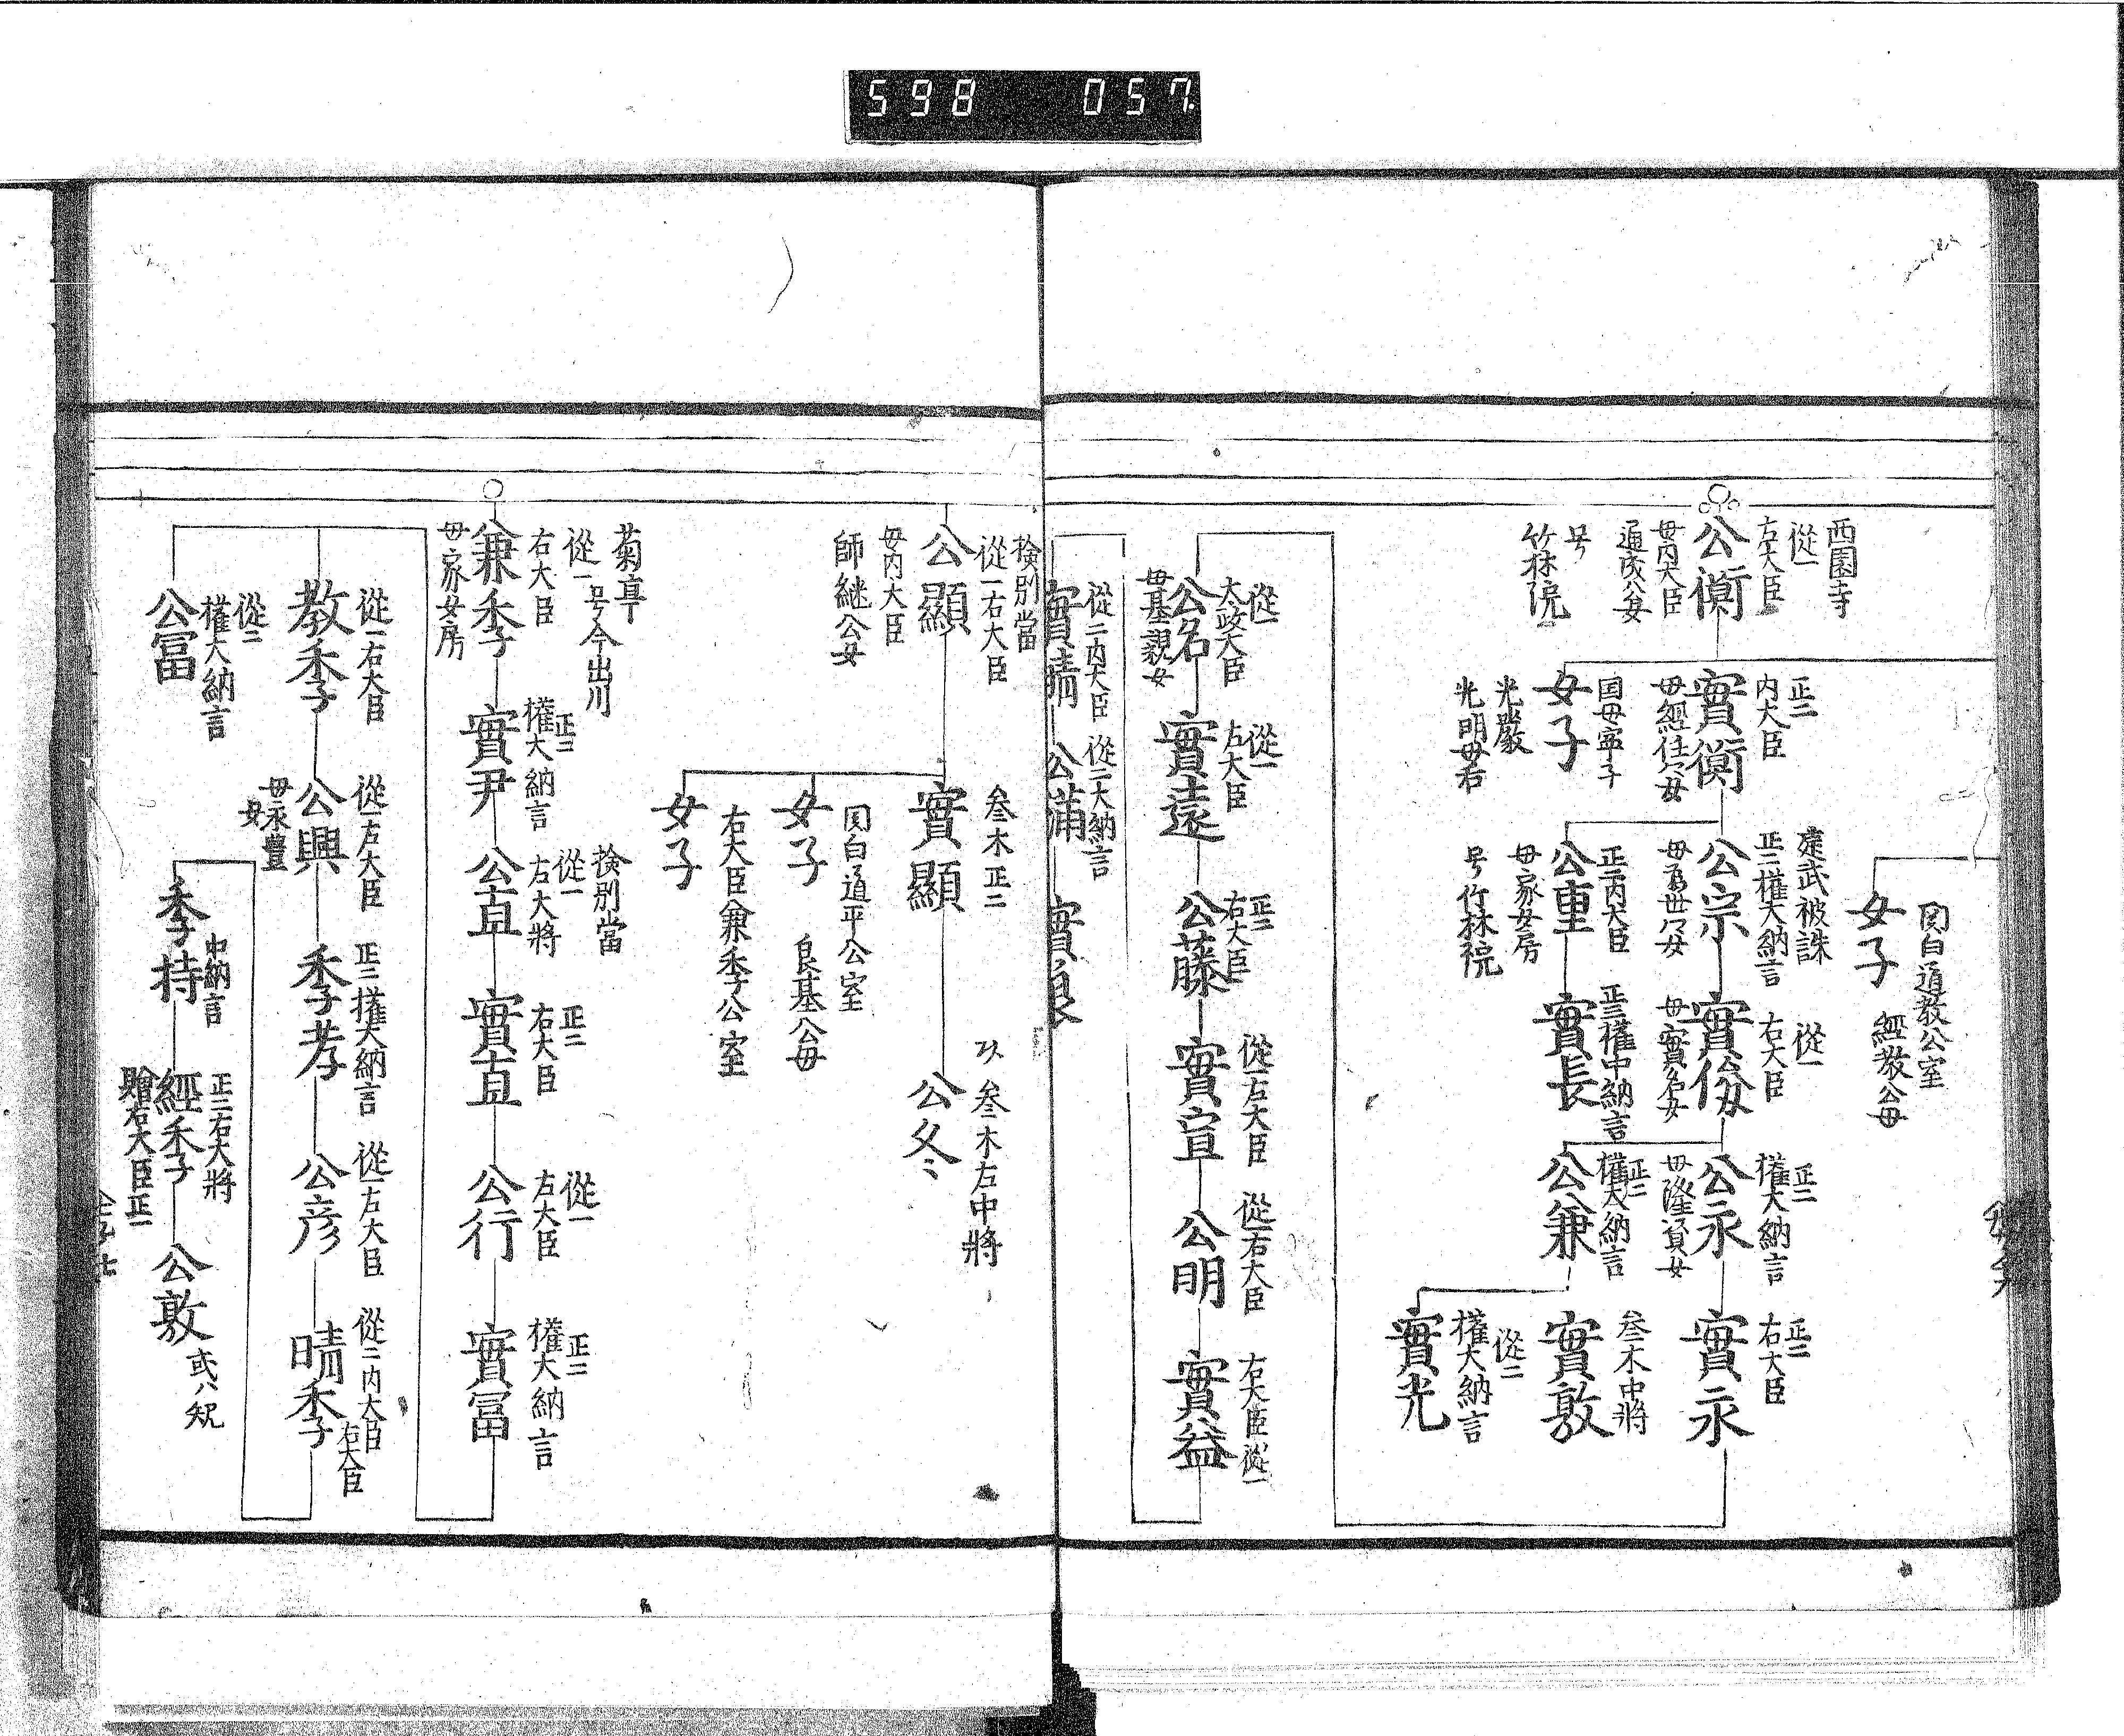 598 057
西園寺
從一
左大臣
公衡
母内大臣
通成公女
号
竹林院
正二
内大臣
實衡
母經任公女
国母寧子
女子
光嚴
光明母后
関白道教公室
女子
經教公母
建武被誅
正二權大納言
公宗
母為世公女
正二内大臣
公重
母家女房
号竹林院
從一
右大臣
實俊
母實名女
正三權中納言
實長
正二
權大納言
公永
母隆資女
正二
權大納言
公兼
正二
右大臣
實永
叁木中將
實敦
從二
權大納言
實光
從一
太政大臣
公名
母基親女
從一
左大臣
實遠
正二
右大臣
公藤
從一左大臣
實宣
從一右大臣
公明
右大臣從一
實益
從二内大臣
實晴
從二大納言
公満
實良
撿別當
從一右大臣
公顯
母内大臣
師継公女
叁木正二
實顯
関白道平公室
女子
良基公母
右大臣兼季公室
女子
叁木左中將
公冬
菊亭
号今出川
從一
右大臣
兼季
母家女房
正二
權大納言
實尹
撿別當
從一
左大將
公直
正二
右大臣
實直
從一
左大臣
公行
正二
權大納言
實冨
從一右大臣
教季
從二
權大納言
公冨
從一左大臣
公興
母永豊
女
正二權大納言
季孝
從一左大臣
公彦
從二内大臣
右大臣
晴季
中納言
季持
正二右大將
經季
贈右大臣正一
公敦
或ハ規